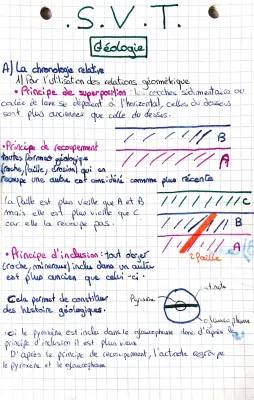 . S. V. T.
Géologie
A) La chronologie relative
1) Par l'utilisation des relations géométrique
• Principe de superposition : les couches sédimentaires ou
coulée de lave se déposent à l'horizontal, celles du dessous
sont plus anciennes que celle du dessus.
B
A
• Principe de recoupement
toutes formes géologique
(roche, faille, érosion) qui en
recoupe une autre est considéré comme plus récente
La faille est plus vieille que A et B
mais elle est plus vieille que C
car elle la recoupe pas.
C
B
A
Faille
• Principe d'inclusion : tout objet
(roche, minéraux) inclus dans un autre
est plus ancien que celui-ci.
Cela permet de constituer
des histoire géologiques.
Pyroxène
glaucophane
ici le pyroxène est inclu dans le glaucophane donc d'après le
principe d'inclusion il est plus vieux
D'après le principe de recoupement, l'actinote regroupe
le pyroxène et le glaucophane